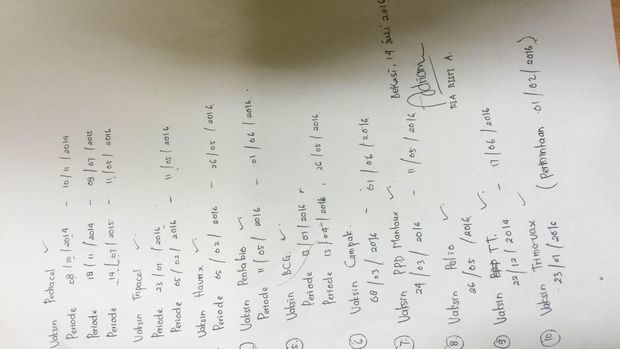 Vaksin Pediacel ✓
Periode 08/10/2014 - 10/11/2014
Periode 18/11/2014 - 09/07/2015
Periode 14/07/2015 - 11/05/2016
Vaksin Tripacel ✓
Periode 23/01/2016
Periode 05/02/2016 - 11/05/2016
Vaksin Havrix ✓
Periode 05/02/2016 - 26/05/2016
Vaksin Pentabio ✓
Periode 11/05/2016 - 01/06/2016.
5. Vaksin BCG ✓
Periode 13/01/2016
Periode 13/04/2016, 26/05/2016
6 Vaksin Campak
08/03/2016 - 01/06/2016
7. Vaksin PPD Mantoux ✓
24/03/2016 - 11/05/2016
8) Vaksin Polio ✓
26/05/2016,
9. Vaksin TT. ✓
22/12/2014 - 17/06/2016
10 Vaksin Trimovax ✓
23/01/2016 (Permintaan 01/02/2016)
Bekasi, 14 Juli 2016
RISTI A.